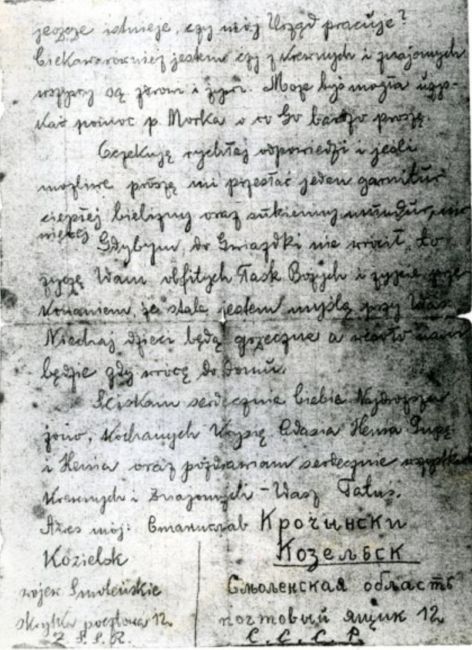 jeszcze istnieje, czy mój Urząd pracuje?
Ciekaw również jestem czy z krewnych i znajomych
wszyscy są zdrowi i żyją. Może byś mogła uzys-
kać pomoc p. Morka o co Go bardzo proszę.
Oczekuję rychłej odpowiedzi i jeśli
możliwe proszę mi przesłać jeden garnitur
ciepłej bielizny oraz sukienny mundur,
więcej Gdybym do Gwiazdki nie wrócił, to
życzę Wam obfitych Łask Bożych i żyjcie prze-
konaniem, że stale jestem myślą przy Was
Niechaj dzieci będą grzeczne a wesoło
będzie gdy wrócę do domu.
Ściskam serdecznie Ciebie Najdroższa
żono, Kochanych Krysię Adasia Henia
i Henia oraz pozdrawiam serdecznie wszystkich
Krewnych i Znajomych - Wasz Tatuś.
Adres mój: Крочински
Kozielsk
Козельск
wojew Smoleńskie
Смоленская область
skrytka pocztowa 12.
почтовый ящик 12
Z.S.S.R.
С.С.С.Р.